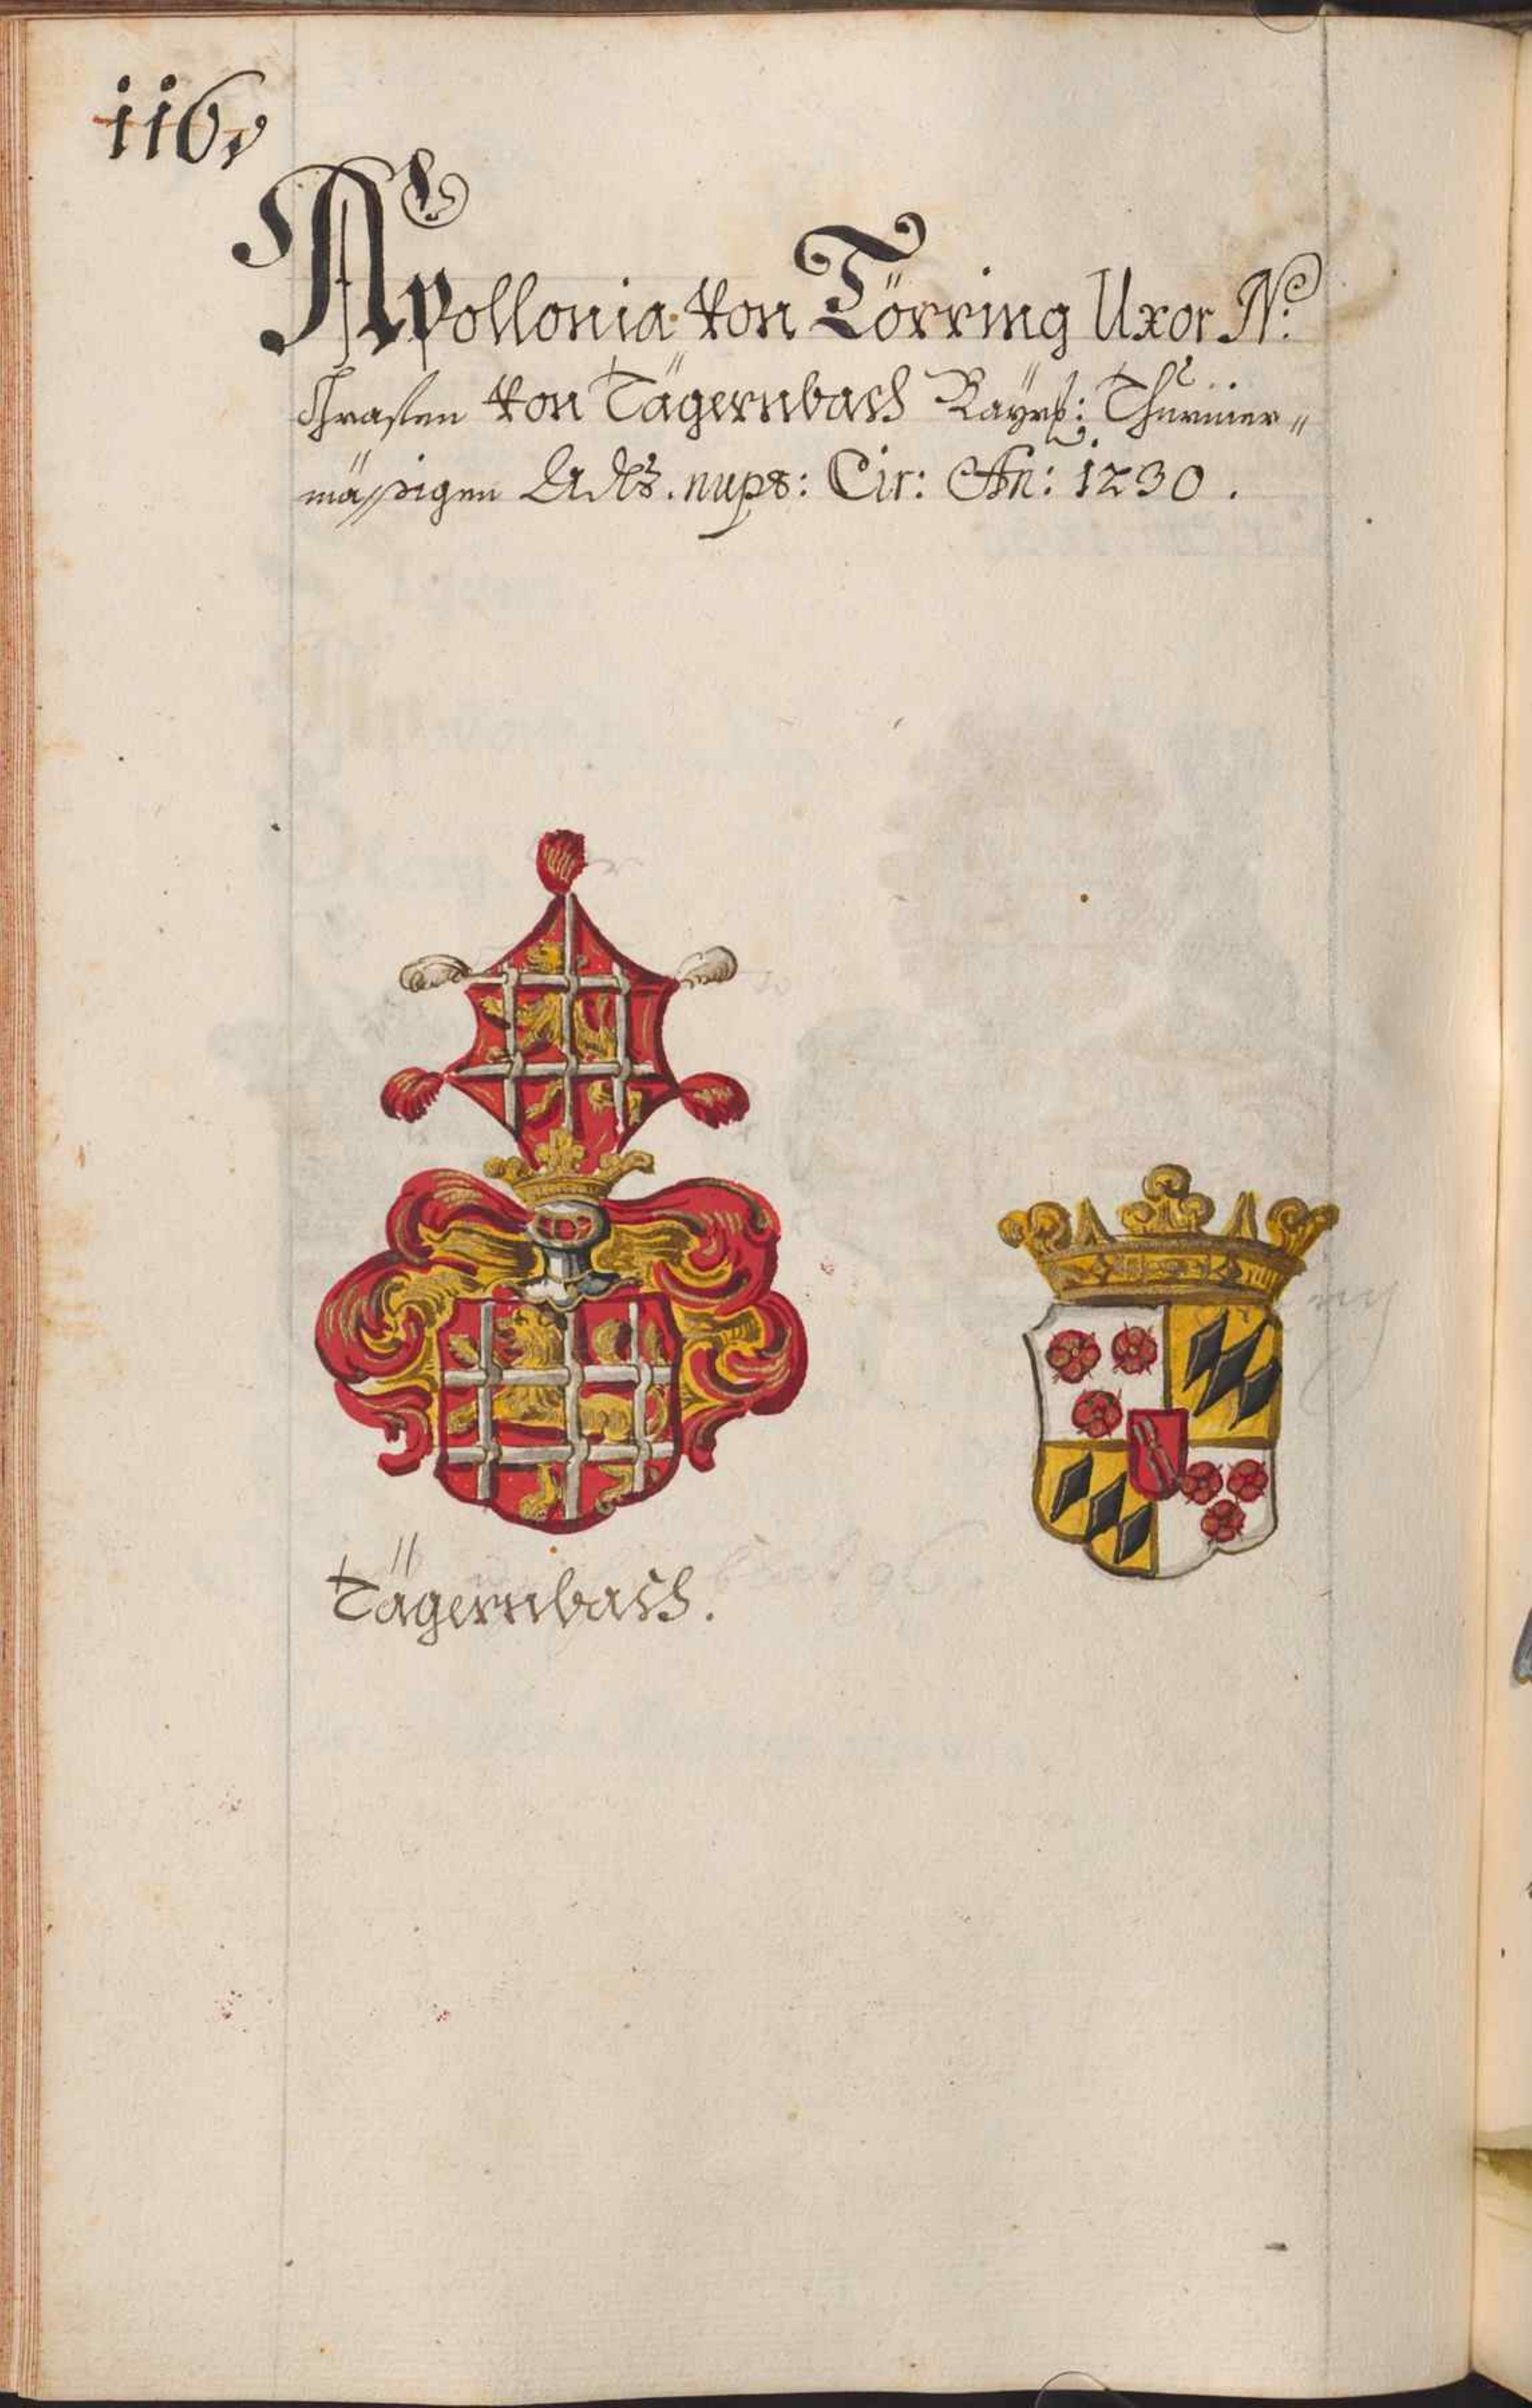 116,
Apollonia von Törring Uxor N:
Herrn von Tägernbach Bayrs: Thurnier„
mässigen Adls. nupt: Cir: An: 1230.
Tägernbach.